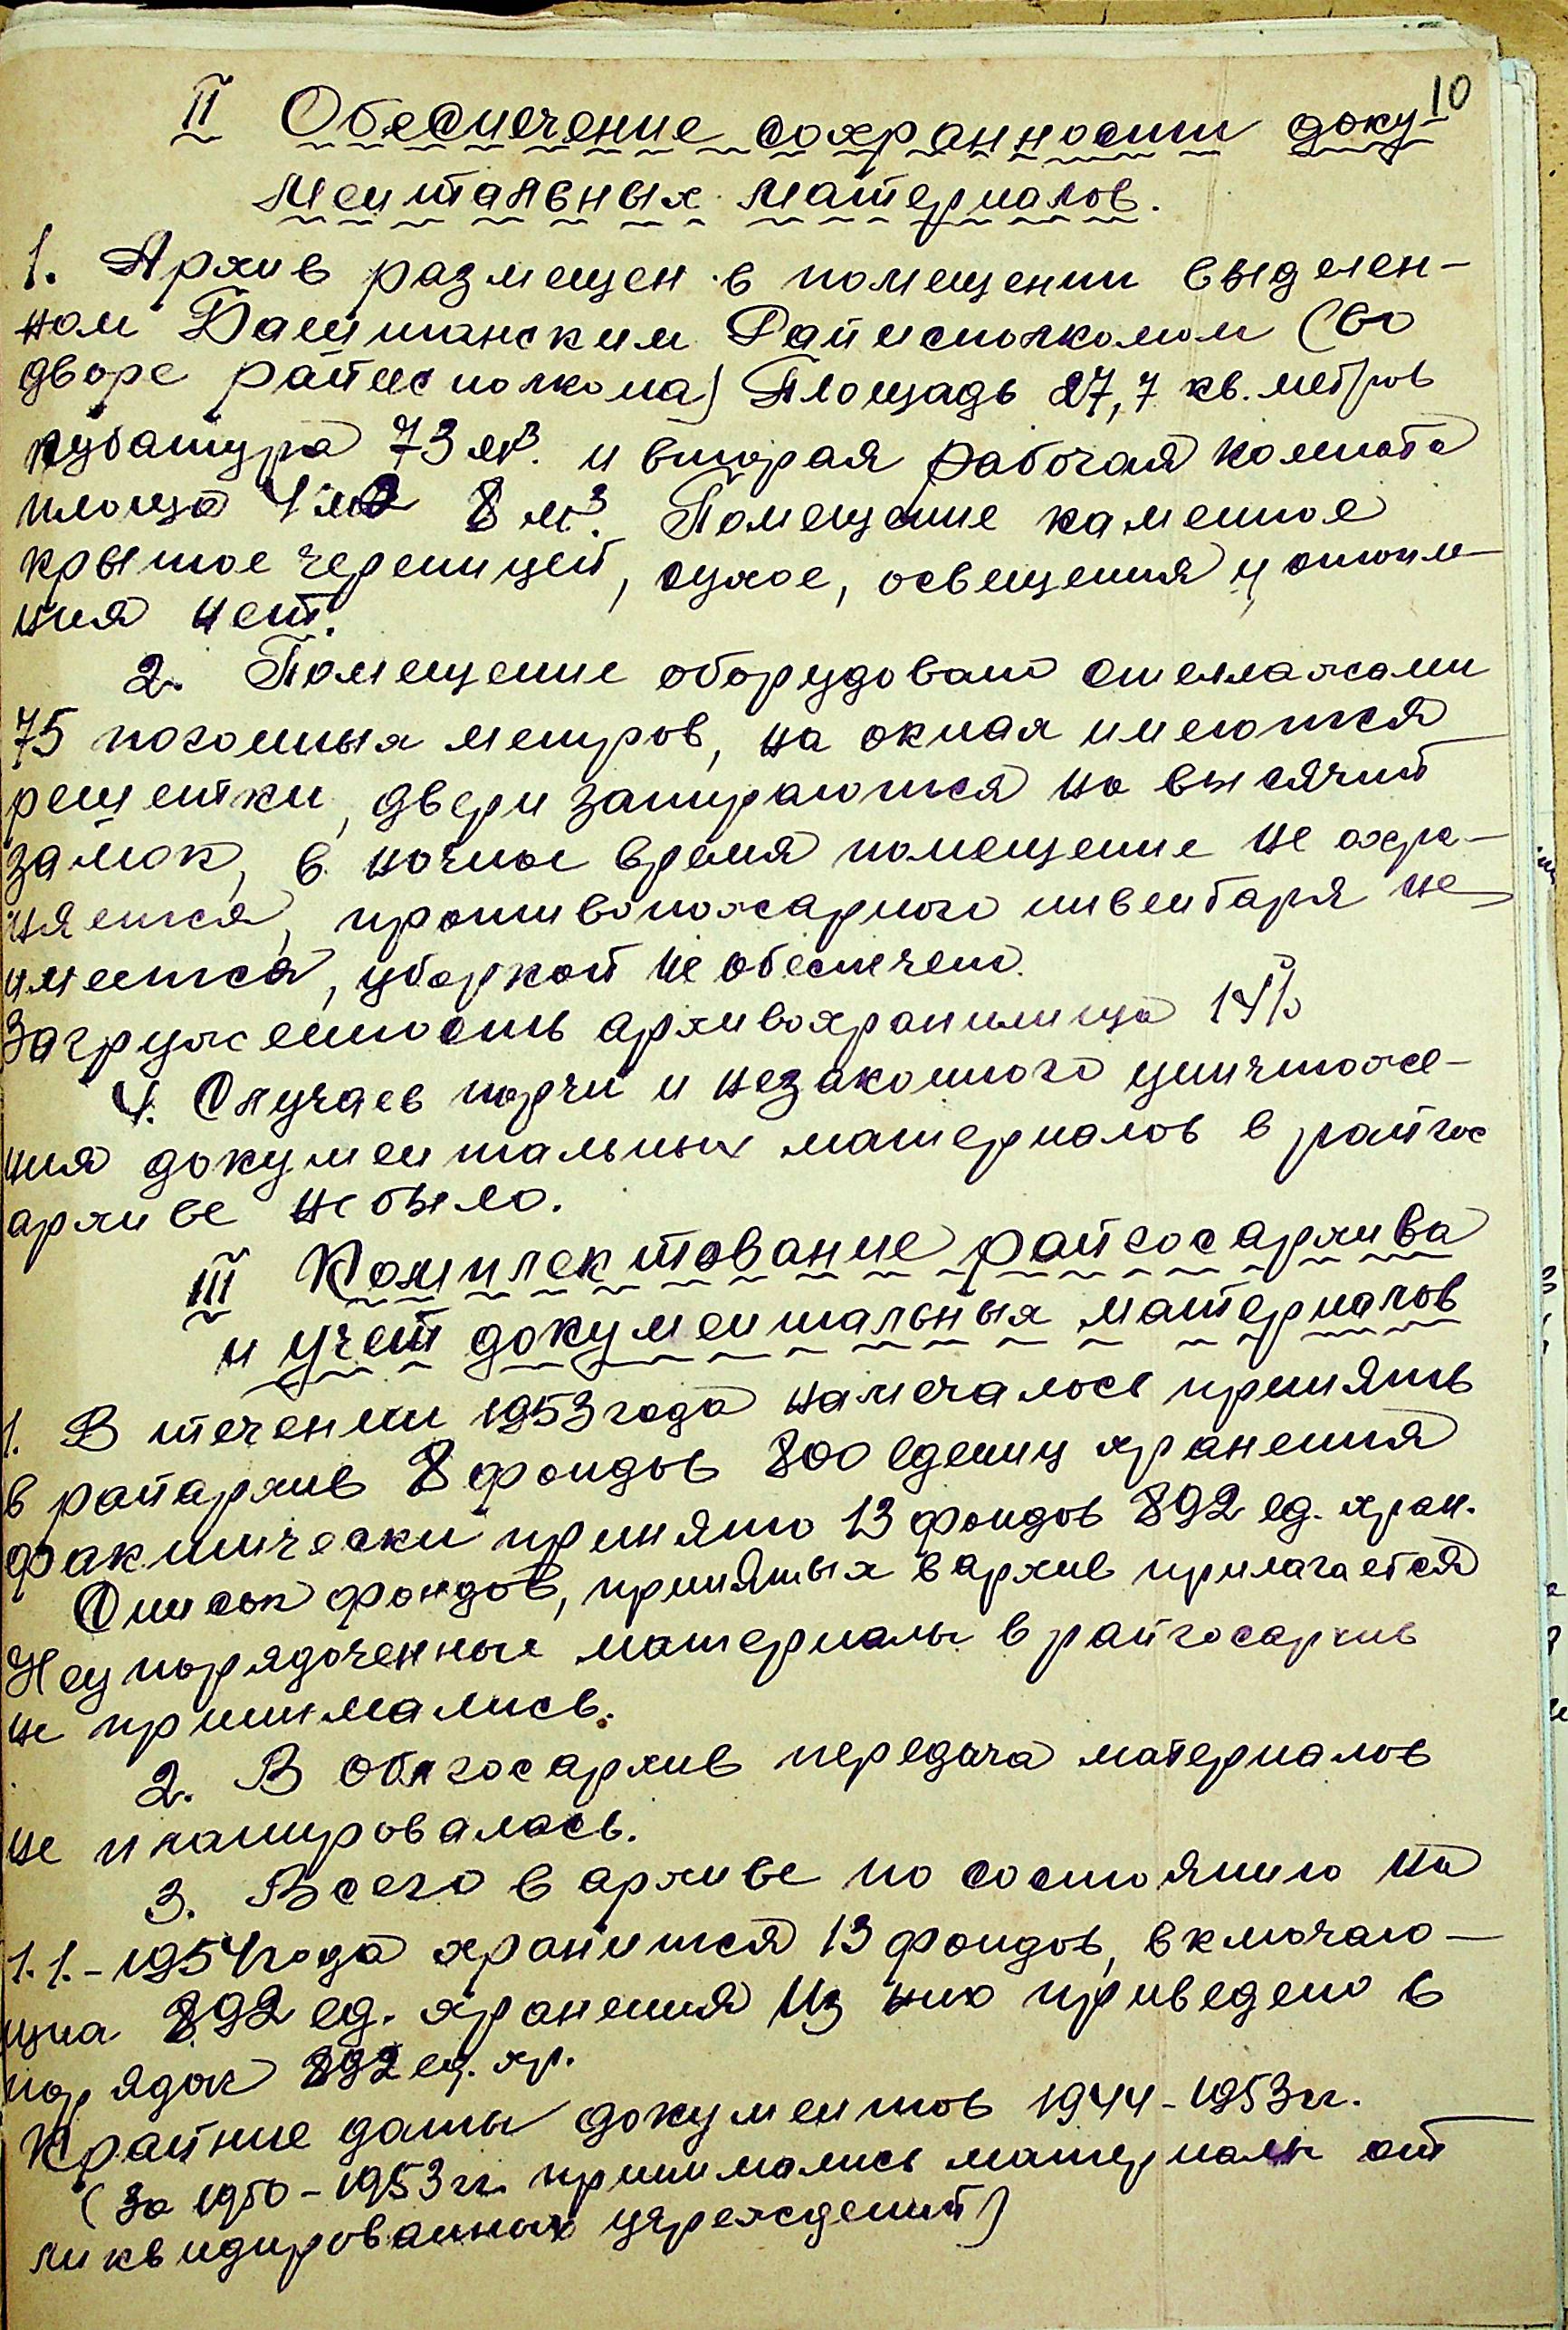 10
II Обеспечение сохранности доку-
ментальных материалов.
1. Архив размещен в помещении выделен-
ном Баштанским Райисполкомом (во
дворе райисполкома) Площадь 27,7 кв. метров
кубатура 73 м³. и вторая рабочая комната
площа 4 м2 8 м³. Помещение каменное
крытое черепицей, сухое, освещения и отопле-
ния нет.
2. Помещение оборудовано стеллажами
75 погонных метров, на окнах имеются
решетки, двери запираются на высячий
замок, в ночное время помещение не охра-
няется, противопожарного инвентаря не
имеется, уборкой не обеспечено.
Загруженность архивохранилища 14%
4. Случаев порчи и незаконного уничтоже-
ния документальных материалов в райгос
архиве не было.
III Комплектование райгосархива
и учет документальных материалов
1. В течении 1953 года намечалось принять
в райархив 8 фондов 800 едениц хранения
фактически принято 13 фондов 892 ед. хран.
Список фондов, принятых в архив прилагается
Неупорядоченные материалы в райгосархив
не принимались.
2. В Облгосархив передача материалов
не планировалась.
3. Всего в архиве по состоянию на
1.1.-1954 года хранится 13 фондов, включаю-
щиа 892 ед. хранения Из них приведено в
порядок 892 ед. хр.
Крайние даты документов 1944-1953 гг.
(за 1950-1953 гг. принимались материалы от
ликвидированных учреждений)